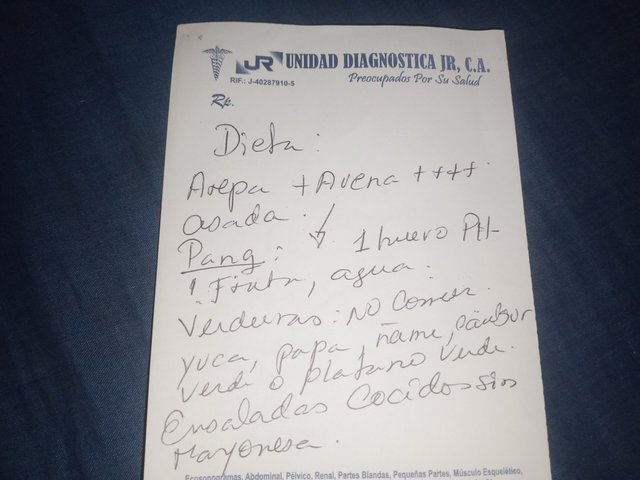 JR UNIDAD DIAGNOSTICA JR, C.A.
RIF.: J-40287910-5
Preocupados Por Su Salud
Rp.
Dieta:
Arepa + Avena ++++
asada.
Pang: 1 huevo
1 Fruta, agua.
Verduras: NO Comer
yuca, papa, ñame,
verde o platano verde.
Ensaladas Cocidos sin
Mayonesa.
Ecosonogramas, Abdominal, Pélvico, Renal, Partes Blandas, Pequeñas Partes, Músculo Esquelético,